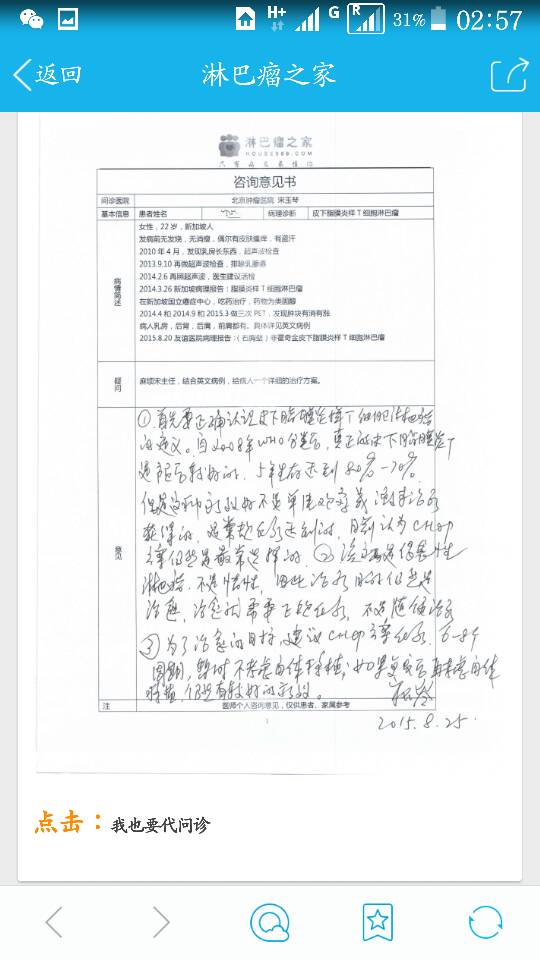 H+
G
R
31%
02:57
返回
淋巴瘤之家
淋巴瘤之家
HOUSE086.COM
咨询意见书
问诊医院 北京肿瘤医院 宋玉琴
基本信息 患者姓名 病理诊断 皮下脂膜炎样T细胞淋巴瘤
病情简述
女性，22岁，新加坡人
发病前无发烧，无消瘦，偶尔有皮肤瘙痒，有盗汗
2010年4月，发现乳房长东西，超声波检查
2013.9.10再做超声波检查，排除乳腺癌
2014.2.6再照超声波，医生建议活检
2014.3.26新加坡病理报告：脂膜炎样T细胞淋巴瘤
在新加坡国立癌症中心，吃药治疗，药物为类固醇
2014.4和2014.9和2015.3做三次PET，发现肿块有消有涨
病人乳房，后背，后肩，前肩都有。具体详见英文病例
2015.8.20友谊医院病理报告：（右胸壁）非霍奇金皮下脂膜炎样T细胞淋巴瘤
疑问
麻烦宋主任，结合英文病例，给病人一个详细的治疗方案。
意见
①首先要正确认识皮下脂膜炎样T细胞淋巴瘤
的定义。自2008年WHO分类后，真正的皮下脂膜炎T
是预后较好的，5年生存达到80%-70%
目前认为CHOP
方案仍然是最常选择的。②该病是侵袭性
淋巴瘤，不是惰性，因此治疗目的仍然是
治愈，治愈的需要正规化疗，不是随便治疗
③为了治愈的目标，建议CHOP方案化疗，6-8个
周期，暂时不考虑自体移植，如果复发后再考虑自体
移植，仍然有较好的疗效。
2015.8.25.
注 医师个人咨询意见，仅供患者、家属参考
1
点击：我也要代问诊